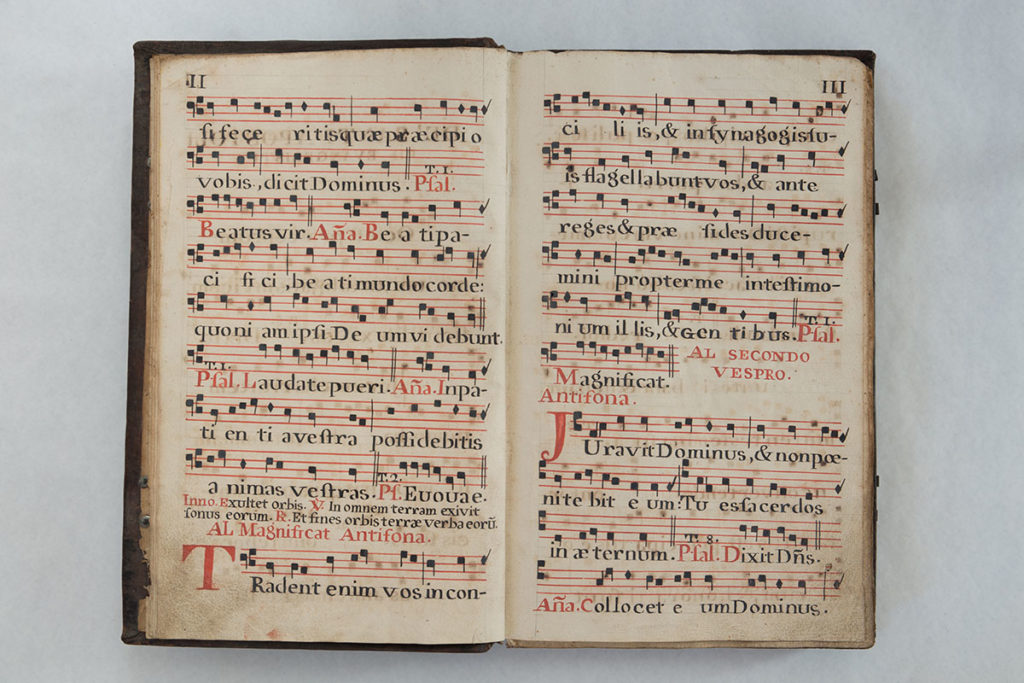 II
si feçe ritis quæ præcipio
T. 1.
vobis, dicit Dominus. Psal.
Beatus vir. Aña. Be a ti pa-
ci fi ci, be a ti mundo corde:
quoni am ipsi De um vi debunt.
T. 1.
Psal. Laudate pueri. Aña. In pa-
ti en ti a vestra possidebitis
T. 2.
a nimas vestras. Ps. Evovae.
Inno. Exultet orbis. V. In omnem terram exivit
sonus eorum. R. Et fines orbis terræ verba eorũ.
AL Magnificat Antifona.
TRadent enim vos in con-
III
ci li is, & in synagogis su-
is flagellabunt vos, & ante
reges & præ sides duce-
mini propter me in testimo-
T. 1.
ni um il lis, & Gen ti bus. Psal.
Magnificat.
AL SECONDO
VESPRO.
Antifona.
JUravit Dominus, & non pœ-
nite bit e um: Tu es sacerdos
T. 8.
in æ ternum. Psal. Dixit Dñs.
Aña. Collocet e um Dominus.